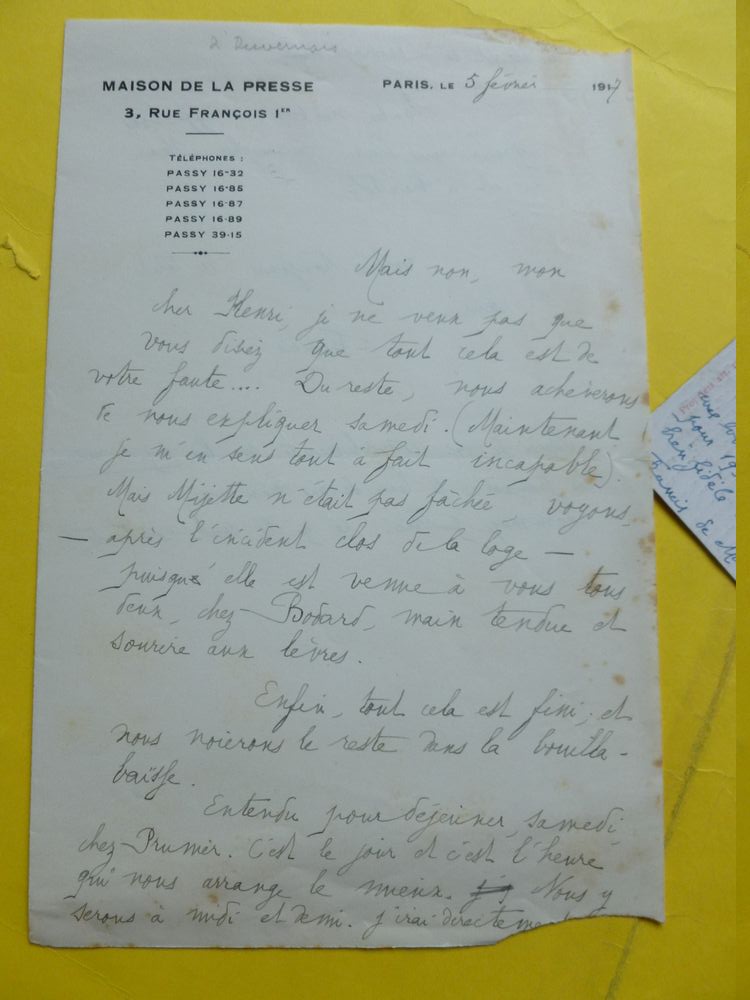 à Duvernois
MAISON DE LA PRESSE
3, RUE FRANÇOIS 1ER
PARIS, LE 5 février 1917
TÉLÉPHONES :
PASSY 16-32
PASSY 16-85
PASSY 16-87
PASSY 16-89
PASSY 39-15
Mais non, mon
cher Henri, je ne veux pas que
vous disiez que tout cela est de
votre faute.... Du reste, nous achèverons
de nous expliquer samedi. (Maintenant
je m'en sens tout à fait incapable).
Mais Mijette n'était pas fâchée, voyons,
— après l'incident clos de la loge —
puisqu'elle est venue à vous tous
deux, chez Bodard, main tendue et
sourire aux lèvres.
Enfin, tout cela est fini, et
nous noierons le reste dans la bouilla-
baisse.
Entendu pour déjeuner, samedi,
chez Prunier. C'est le jour et c'est l'heure
qui nous arrange le mieux. Nous y
serons à midi et demi. J'irai directement
pour 19
bien fidèle
Francis de M